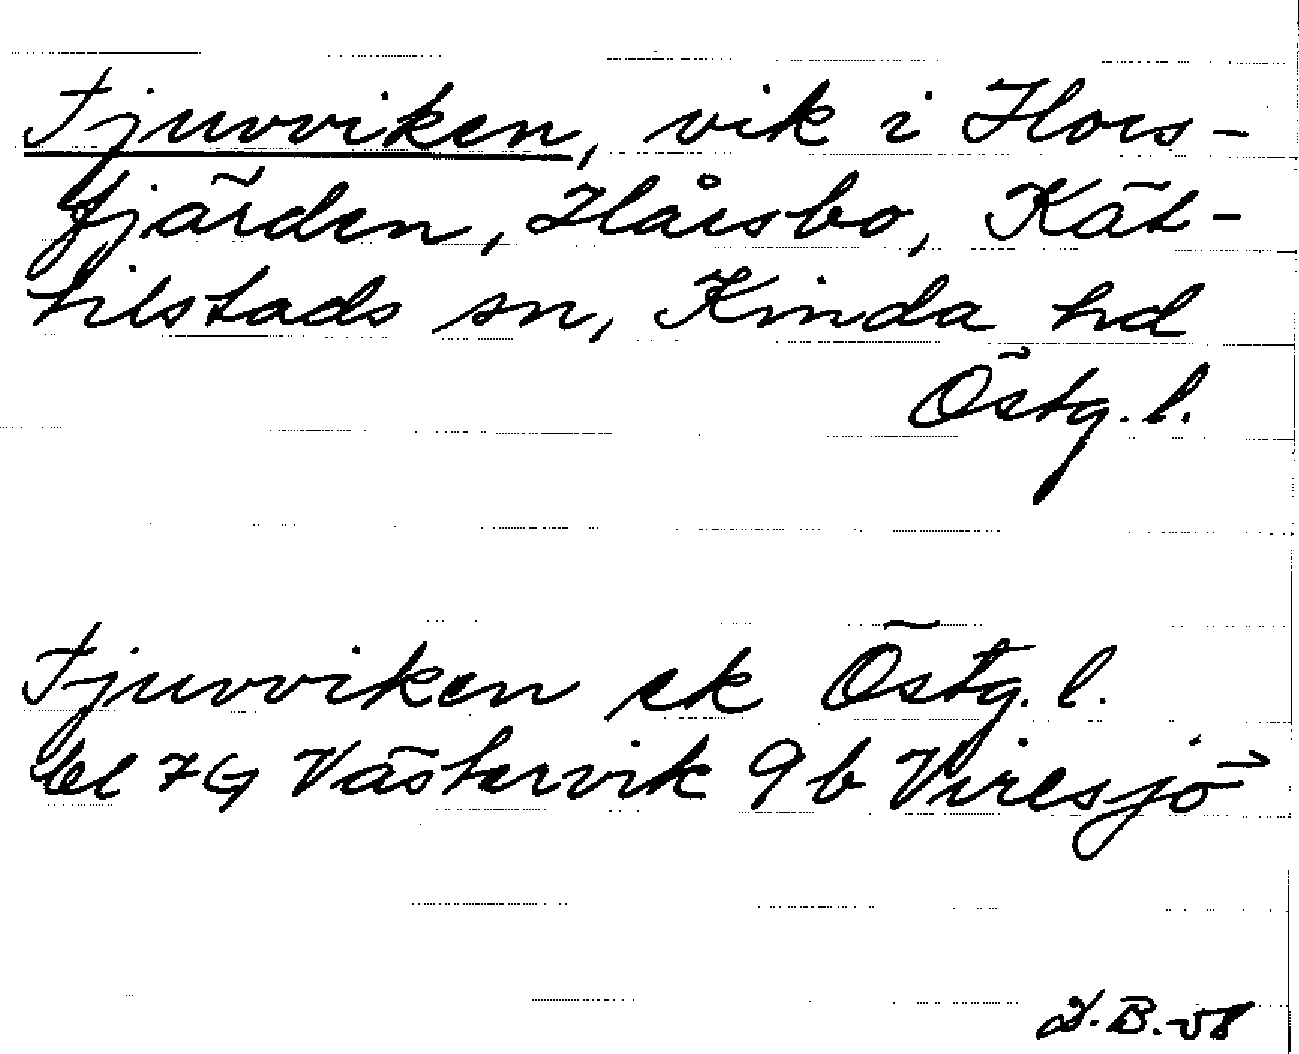 Tjuvviken, vik i Hors-
fjärden, Håisbo, Kät-
tilstads sn, Kinda hd
Östg. l.
Tjuvviken ek Östg. l.
bl 7G Västervik 9b Viresjö
B.-58